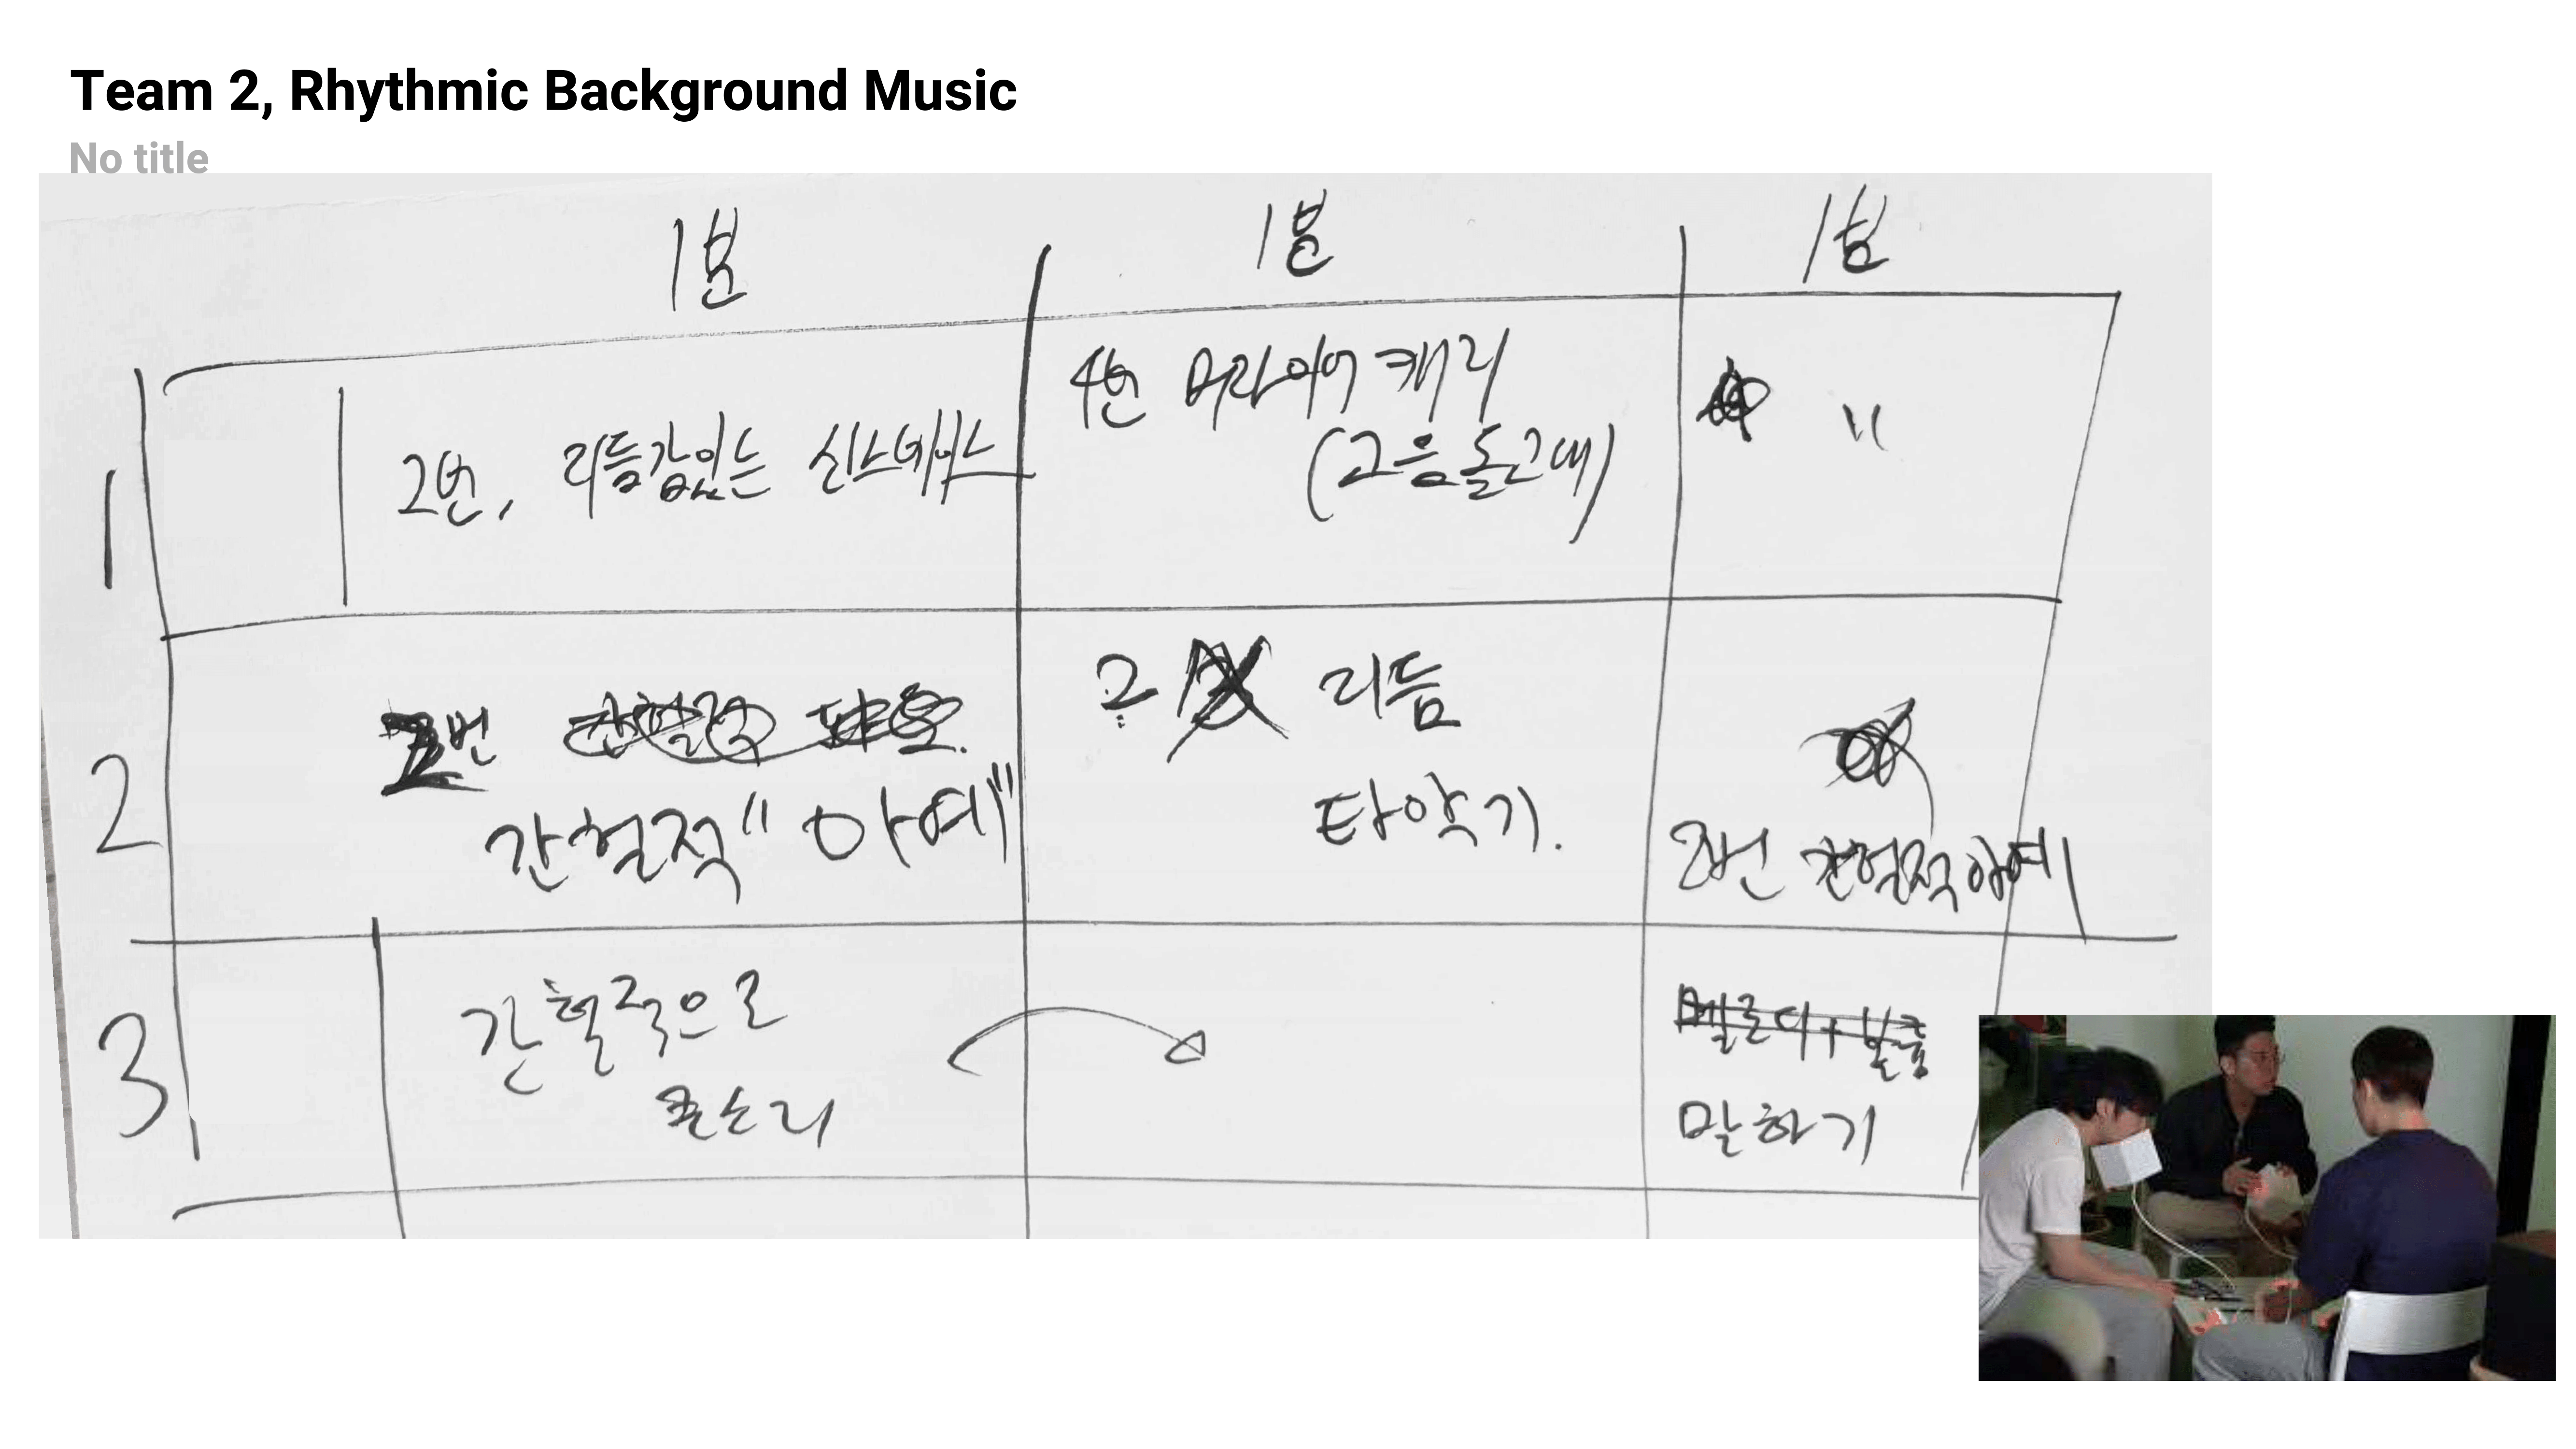 Team 2, Rhythmic Background Music
No title
1분 1분 1분
1
2번, 리듬감있는 신스베이스
4번 머라이어 캐리
(고음돌고래)
"
2
2번
간헐적 "아예"
2 리듬
타악기.
2번 간헐적 아예
3
간헐적으로
큰소리
멜로디+
말하기